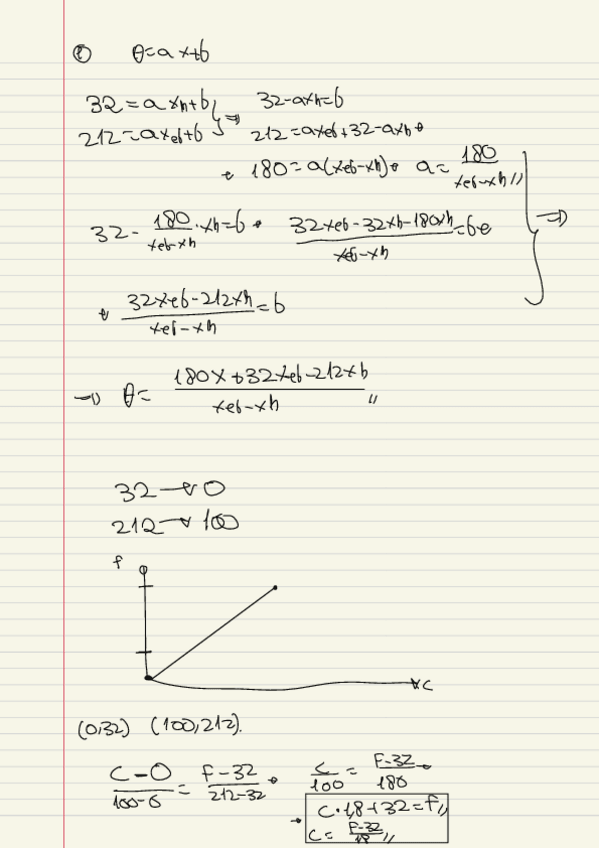 θ=ax+b
32=axh+b ⇒ 32-axh=b
212=axeb+b 212=axeb+32-axh
180=a(xeb-xh) a=180/(xeb-xh)//
32-180/(xeb-xh)·xh=b (32xeb-32xh-180xh)/(xeb-xh)=b ⇒
(32xeb-212xh)/(xeb-xh)=b
⇒ θ=(180x+32xeb-212xh)/(xeb-xh)//
32→0
212→100
f
C
(0,32) (100,212).
(C-0)/(100-0)=(F-32)/(212-32) C/100=(F-32)/180
C·1,8+32=F//
C=(F-32)/1,8//